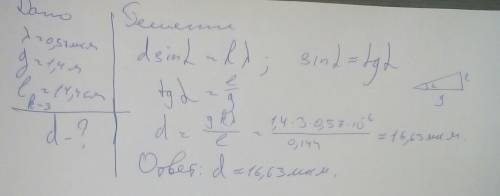 Дано
λ=0,57мкм
g=1,4м
l=14,4см
k=3
d-?
Решение
d sinα = kλ ; sinα = tgα
tgα = l/g
d = gkλ/l = 1,4·3·0,57·10⁻⁶/0,144 = 16,63мкм.
α l
g
Ответ: d = 16,63мкм.